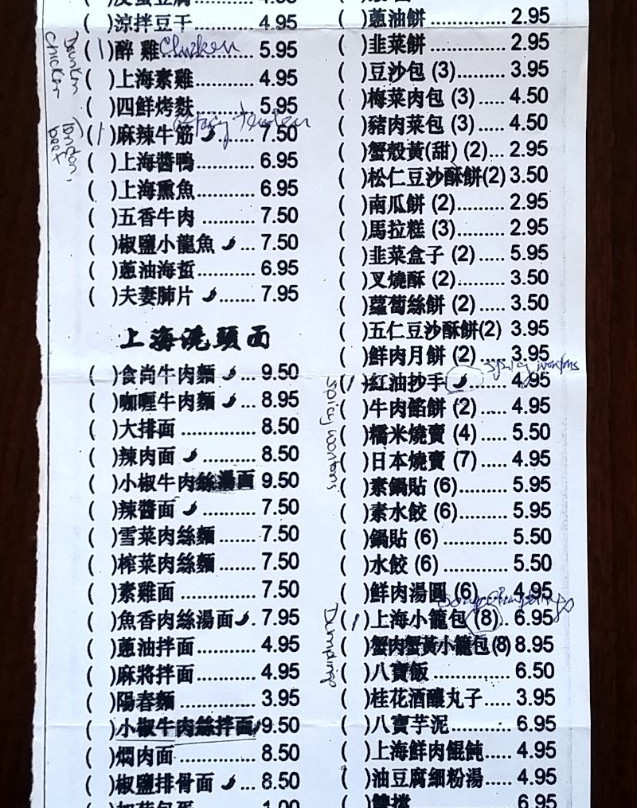 涼拌豆干 4.95
(1)醉雞 Chicken 5.95
( )上海素雞 4.95
( )四鮮烤麩 5.95
(1)麻辣牛筋 7.50
( )上海醬鴨 6.95
( )上海熏魚 6.95
( )五香牛肉 7.50
( )椒鹽小龍魚 7.50
( )蔥油海蜇 6.95
( )夫妻肺片 7.95
Chicken
beef
上海澆頭面
( )食尚牛肉麵 9.50
( )咖喱牛肉麵 8.95
( )大排面 8.50
( )辣肉面 8.50
( )小椒牛肉絲湯面 9.50
( )辣醬面 7.50
( )雪菜肉絲麵 7.50
( )榨菜肉絲麵 7.50
( )素雞面 7.50
( )魚香肉絲湯面 7.95
( )蔥油拌面 4.95
( )麻將拌面 4.95
( )陽春麵 3.95
( )小椒牛肉絲拌面 9.50
( )燜肉面 8.50
( )椒鹽排骨面 8.50
1.00
( )蔥油餅 2.95
( )韭菜餅 2.95
( )豆沙包 (3) 3.95
( )梅菜肉包 (3) 4.50
( )豬肉菜包 (3) 4.50
( )蟹殼黃(甜) (2) 2.95
( )松仁豆沙酥餅(2) 3.50
( )南瓜餅 (2) 2.95
( )馬拉糕 (3) 2.95
( )韭菜盒子 (2) 5.95
( )叉燒酥 (2) 3.50
( )蘿蔔絲餅 (2) 3.50
( )五仁豆沙酥餅(2) 3.95
( )鮮肉月餅 (2) 3.95
spicy wontons
(1)紅油抄手 4.95
( )牛肉餡餅 (2) 4.95
( )糯米燒賣 (4) 5.50
( )日本燒賣 (7) 4.95
( )素鍋貼 (6) 5.95
( )素水餃 (6) 5.95
( )鍋貼 (6) 5.50
( )水餃 (6) 5.50
( )鮮肉湯圓 (6) 4.95
(1)上海小籠包 (8) 6.95
( )蟹肉蟹黃小籠包 (8) 8.95
( )八寶飯 6.50
( )桂花酒釀丸子 3.95
( )八寶芋泥 6.95
( )上海鮮肉餛飩 4.95
( )油豆腐細粉湯 4.95
雙檔 6.95
Spicy wontons
Dumplings